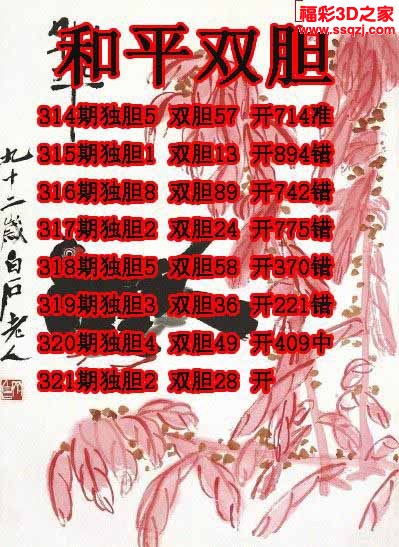 福彩3D之家
www.ssqzj.com
和平双胆
314期独胆5 双胆57 开714准
315期独胆1 双胆13 开894错
316期独胆8 双胆89 开742错
317期独胆2 双胆24 开775错
318期独胆5 双胆58 开370错
319期独胆3 双胆36 开221错
320期独胆4 双胆49 开409中
321期独胆2 双胆28 开
九十二岁白石老人